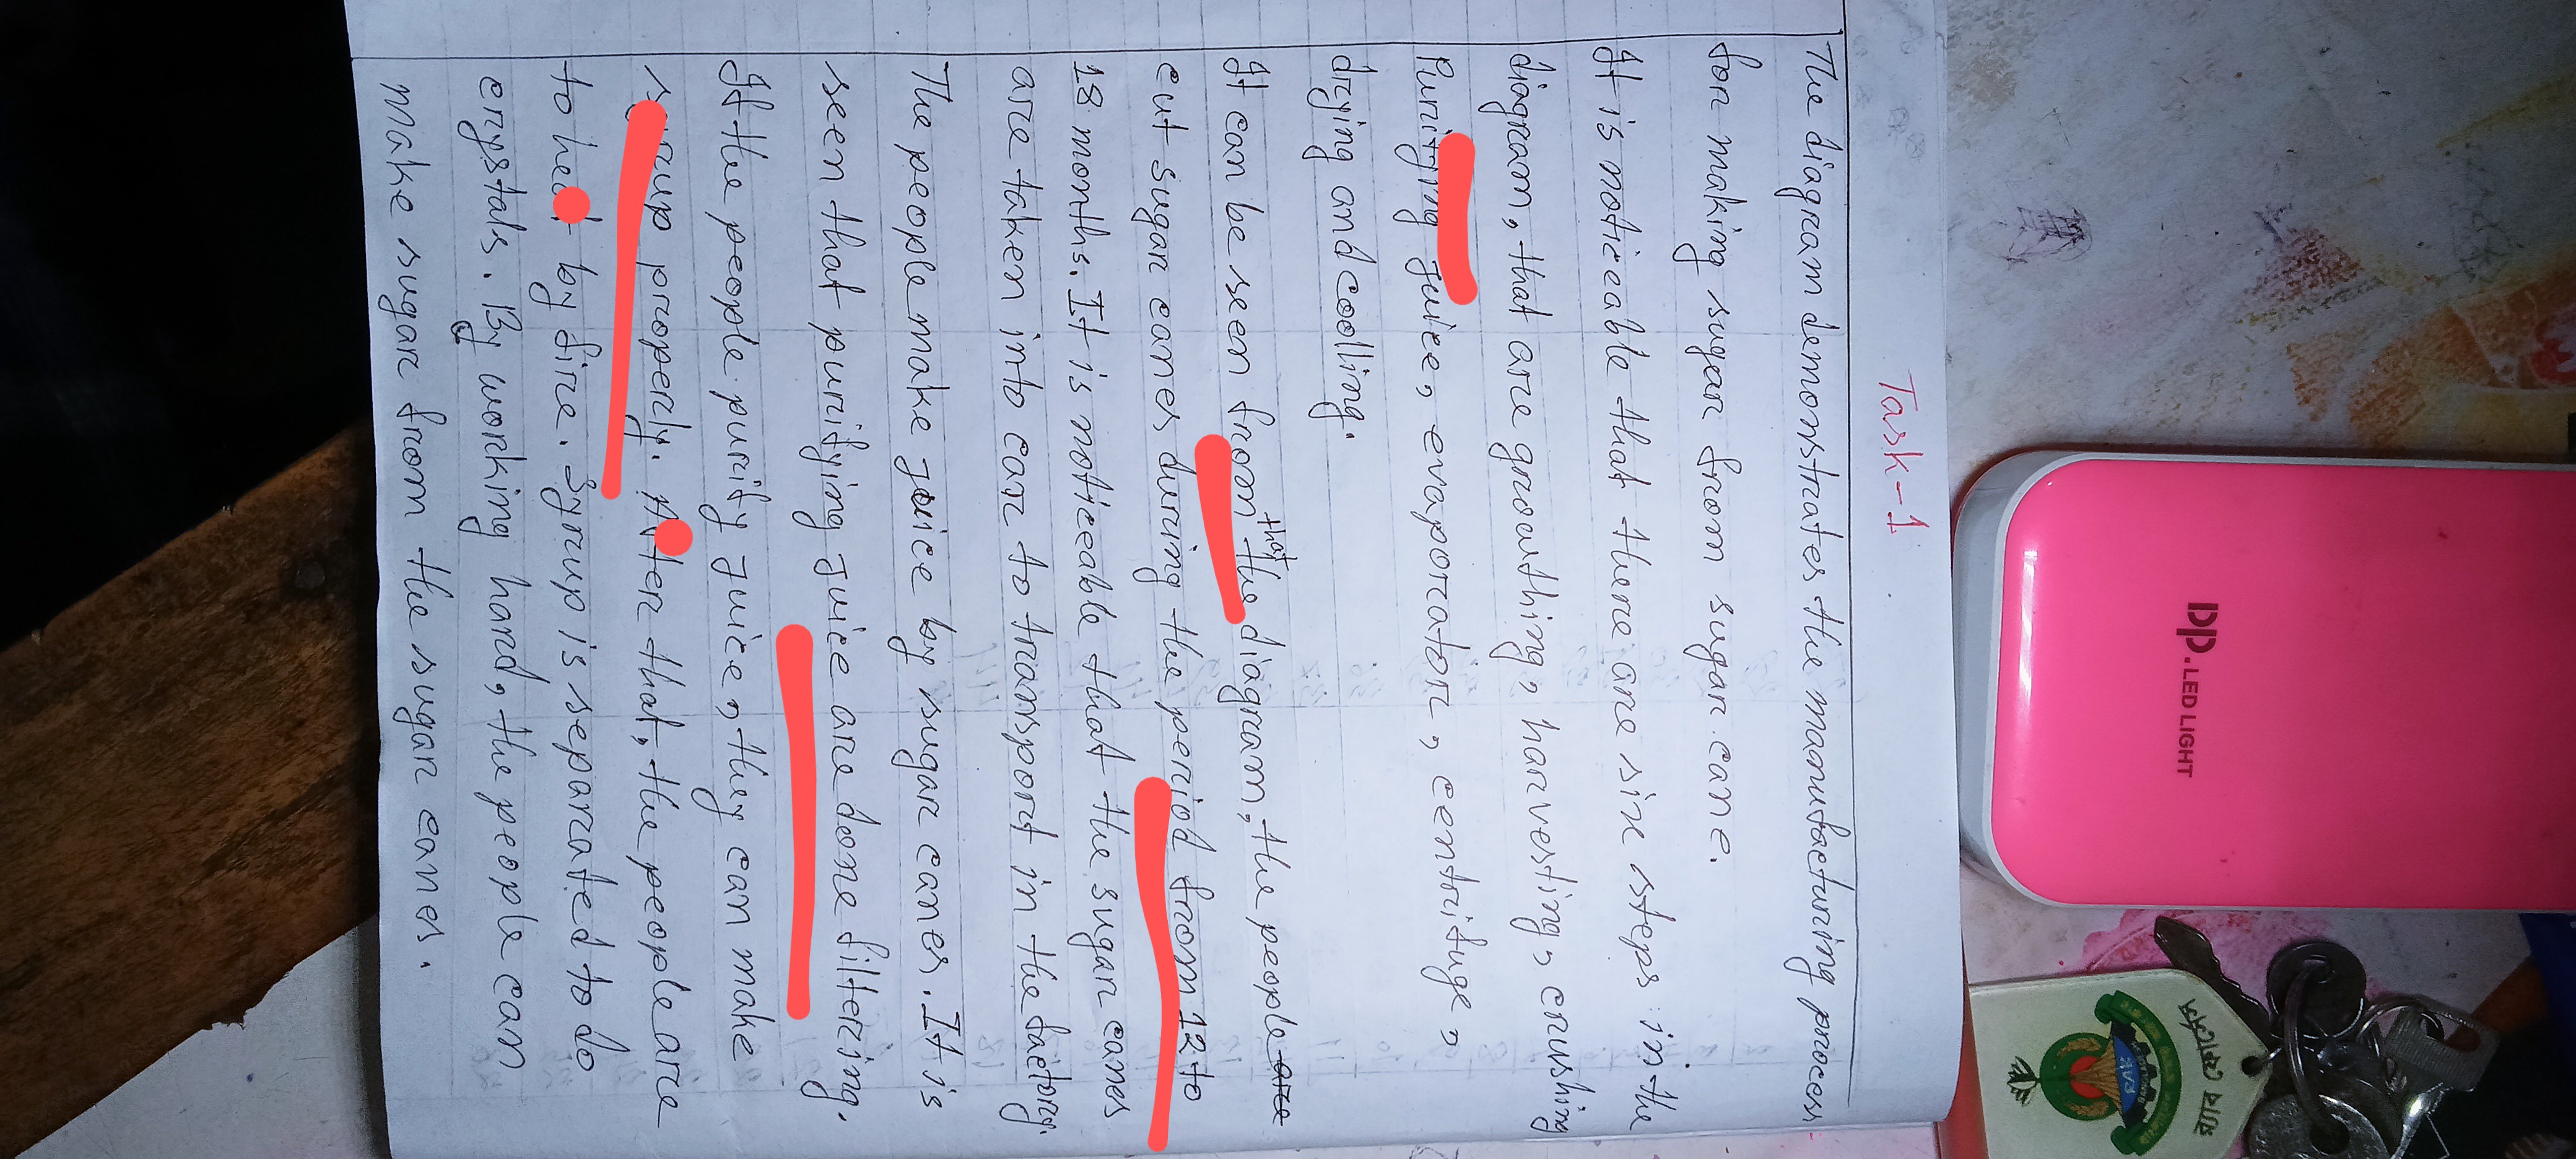 Task-1
The diagram demonstrates the manufacturing process
for making sugar from sugar cane.
It is noticeable that there are six steps in the
diagram, that are growthing, harvesting, crushing
Purifying juice, evaporator, centrifuge,
drying and coolling.
It can be seen from that the diagram, the people are
cut sugar canes during the period from 12 to
18 months. It is noticeable that the sugar canes
are taken into car to transport in the factory.
The people make juice by sugar canes. It is
seen that purifying juice are done filtering.
If the people purify juice, they can make
properly. After that, the people are
to by fire. Syrup is separated to do
crystals. By working hard, the people can
make sugar from the sugar canes.
DP. LED LIGHT